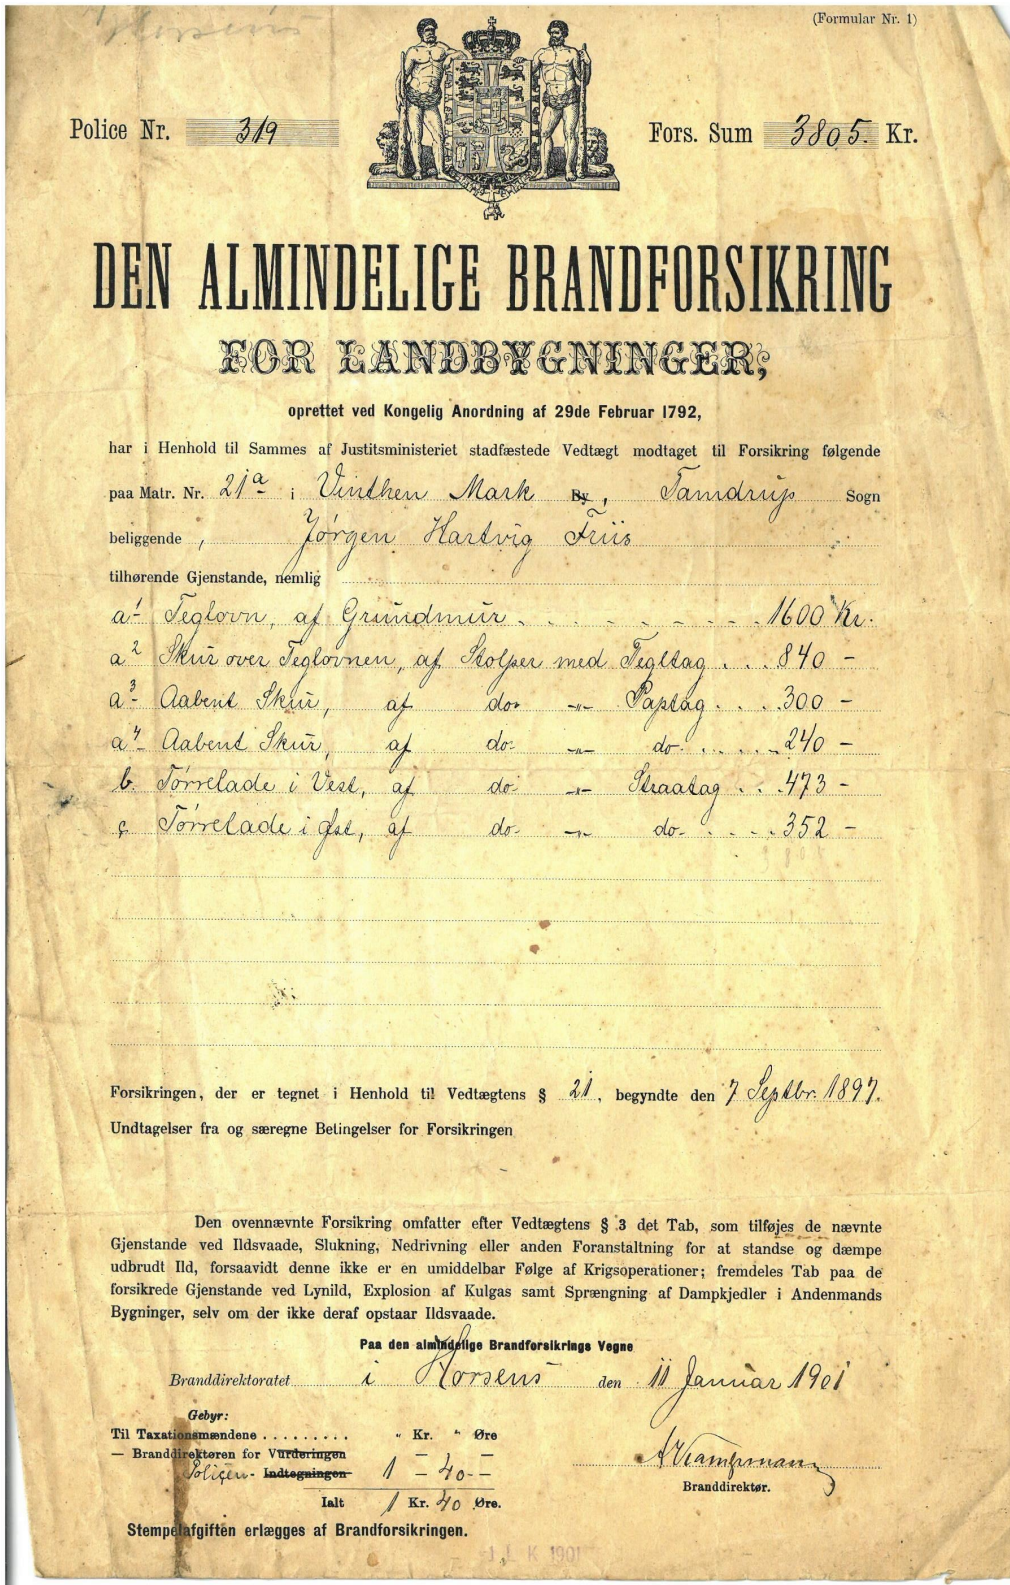 Horsens
(Formular Nr. 1)
Police Nr. 319
Fors. Sum 3805. Kr.
DEN ALMINDELIGE BRANDFORSIKRING
FOR LANDBYGNINGER,
oprettet ved Kongelig Anordning af 29de Februar 1792,
har i Henhold til Sammes af Justitsministeriet stadfæstede Vedtægt modtaget til Forsikring følgende
paa Matr. Nr. 21a i Vinthen Mark By, Tamdrup Sogn
beliggende, Jørgen Hartvig Friis
tilhørende Gjenstande, nemlig
a1 Teglovn, af Grundmur . . . . . . . 1600 Kr.
a2 Skur over Teglovnen, af Stolper med Tegltag . . . 840 —
a3 Aabent Skur, af do. -„- Paptag . . . . 300 —
a4 Aabent Skur, af do. -„- do. . . . . . 240 —
b. Tørrelade i Vest, af do. -„- Straatag . . . 473 —
c. Tørrelade i Øst, af do. -„- do. . . . . 352 —
3805
Forsikringen, der er tegnet i Henhold til Vedtægtens § 21, begyndte den 7 Septbr. 1897.
Undtagelser fra og særegne Betingelser for Forsikringen
Den ovennævnte Forsikring omfatter efter Vedtægtens § 3 det Tab, som tilføjes de nævnte
Gjenstande ved Ildsvaade, Slukning, Nedrivning eller anden Foranstaltning for at standse og dæmpe
udbrudt Ild, forsaavidt denne ikke er en umiddelbar Følge af Krigsoperationer; fremdeles Tab paa de
forsikrede Gjenstande ved Lynild, Explosion af Kulgas samt Sprængning af Dampkjedler i Andenmands
Bygninger, selv om der ikke deraf opstaar Ildsvaade.
Paa den almindelige Brandforsikrings Vegne
Branddirektoratet i Horsens den 11 Januar 1901
Gebyr:
Til Taxationsmændene . . . . . . . . . „ Kr. „ Øre
— Branddirektøren for Vurderingen — —
Policen - Indtegningen 1 — 40 — —
Ialt 1 Kr. 40 Øre.
Branddirektør.
Stempelafgiften erlægges af Brandforsikringen.